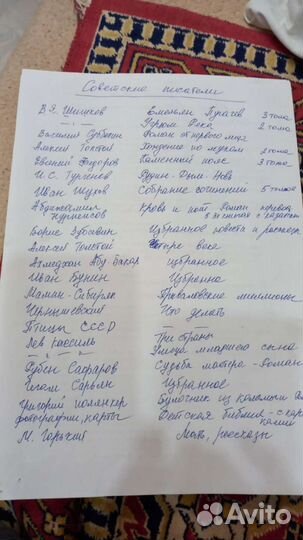 Советские писатели
В.Я. Шишков Емельян Пугачев 3 тома
-"- Угрюм Река 2 тома
Василий Субботин Роман от первого лица
Алексей Толстой Хождение по мукам 2 тома
Евгений Федоров Каменный пояс 3 тома
И.С. Тургенев Рудин - Дым - Новь
Иван Шухов Собрание сочинений 5 томов
Абдижамил Нурпеисов Кровь и пот Роман перевод с казахск
Борис Зубавин Избранное повести и рассказы
Алексей Толстой Четыре века
Ахмедхан Абу Бакар избранное
Иван Бунин Избранное
Мамин-Сибиряк Приваловские миллионы
Чернышевский Что делать
Птицы СССР
Лев Кассиль Три страны
-"- Улица младшего сына
Судьба мастера - роман
Сафаров Избранное
Григорий Полянкер Бубличник из
фотографии, карты Детская библия - с кар
тинками
М. Горький Мать, рассказы
Avito